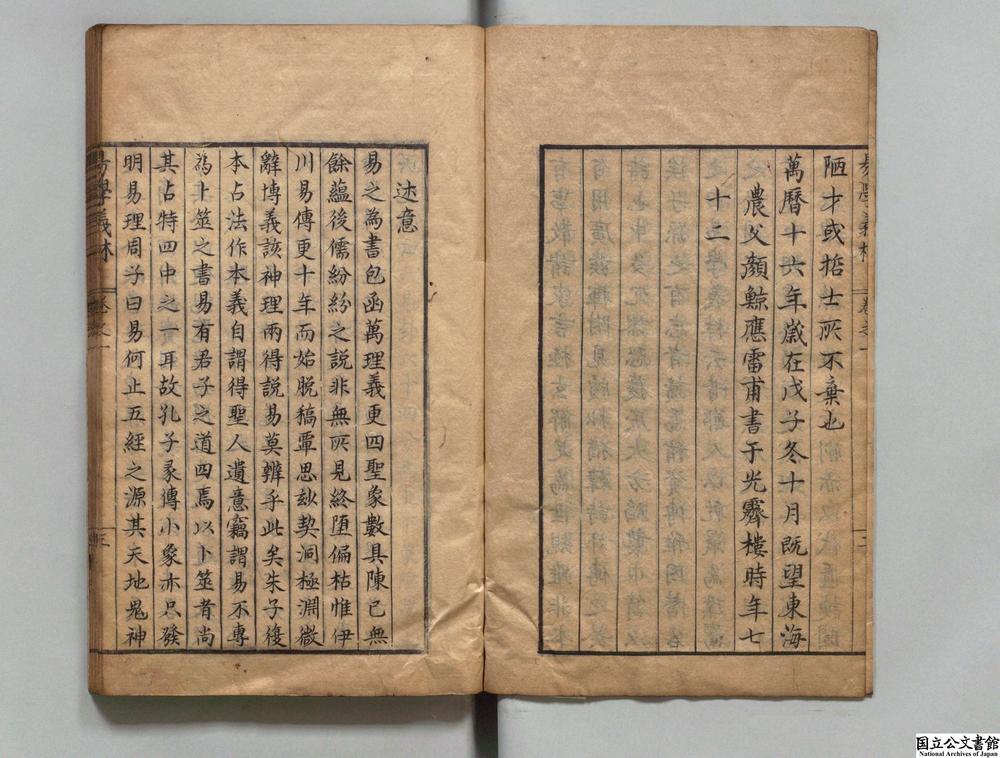 陋才或哲士所不棄也
萬曆十六年歲在戊子冬十月既望東海
農父顏鯨應雷甫書于光霽樓時年七
十二
述意
易之為書包函萬理義更四聖象數具陳已無
餘蘊後儒紛紛之說非無所見終墮偏枯惟伊
川易傳更十年而始脫稿覃思玅契洞極淵微
辭博義該神理兩得説易莫辨乎此矣朱子復
本占法作本義自謂得聖人遺意竊謂易不專
為卜筮之書易有君子之道四焉以卜筮者尚
其占特四中之一耳故孔子彖傳小象亦只發
明易理周子曰易何止五經之源其天地鬼神
易學義林
卷之一
三
国立公文書館
National Archives of Japan